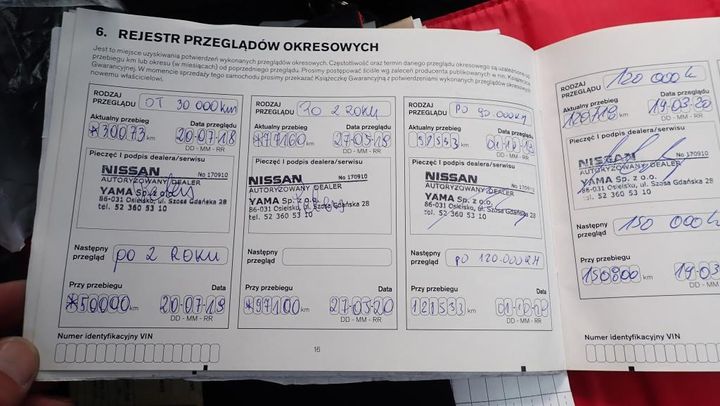 6. REJESTR PRZEGLĄDÓW OKRESOWYCH
Jest to miejsce uzyskiwania potwierdzeń wykonanych przeglądów okresowych. Częstotliwość oraz termin danego przeglądu okresowego są uzależnione od
przebiegu km lub okresu (w miesiącach) od poprzedniego przeglądu. Prosimy postępować ściśle wg zaleceń producenta publikowanych w nin. Książeczce
Gwarancyjnej. W momencie sprzedaży tego samochodu prosimy przekazać Książeczkę Gwarancyjną z potwierdzeniami wykonanych przeglądów okresowych
nowemu właścicielowi.
RODZAJ
PRZEGLĄDU OT 30 000km
Aktualny przebieg Data przeglądu
*30073 km 20-07-18
DD - MM - RR
Pieczęć i podpis dealera/serwisu
NISSAN No 170910
AUTORYZOWANY DEALER
YAMA Sp. z o.o.
86-031 Osielsko, ul. Szosa Gdańska 28
tel. 52 360 53 10
Następny
przegląd po 2 ROKU
Przy przebiegu Data
*50000 km 20-07-19
DD - MM - RR
Numer identyfikacyjny VIN
RODZAJ
PRZEGLĄDU PO 2 ROKU
Aktualny przebieg Data przeglądu
km 27-05-19
DD - MM - RR
Pieczęć i podpis dealera/serwisu
NISSAN No 170910
AUTORYZOWANY DEALER
YAMA Sp. z o.o.
86-031 Osielsko, ul. Szosa Gdańska 28
tel. 52 360 53 10
Następny
przegląd
Przy przebiegu Data
*97100 km 27-05-20
DD - MM - RR
16
RODZAJ
PRZEGLĄDU PO 90.000KM
Aktualny przebieg Data przeglądu
91543 km 01-10-19
DD - MM - RR
Pieczęć i podpis dealera/serwisu
NISSAN No 170910
AUTORYZOWANY DEALER
YAMA Sp. z o.o.
86-031 Osielsko, ul. Szosa Gdańska 28
tel. 52 360 53 10
Następny
przegląd PO 120.000KM
Przy przebiegu Data
121533 km
DD - MM - RR
RODZAJ
PRZEGLĄDU 120 000k
Aktualny przebieg Data przeglądu
km 19-03-20
DD - MM - RR
Pieczęć i podpis dealera/serwisu
NISSAN No 170910
AUTORYZOWANY DEALER
YAMA Sp. z o.o.
86-031 Osielsko, ul. Szosa Gdańska 28
tel. 52 360 53 10
Następny
przegląd 150 000k
Przy przebiegu Data
150800 km 19-03
DD - MM - RR
Numer identyfikacyjny VIN